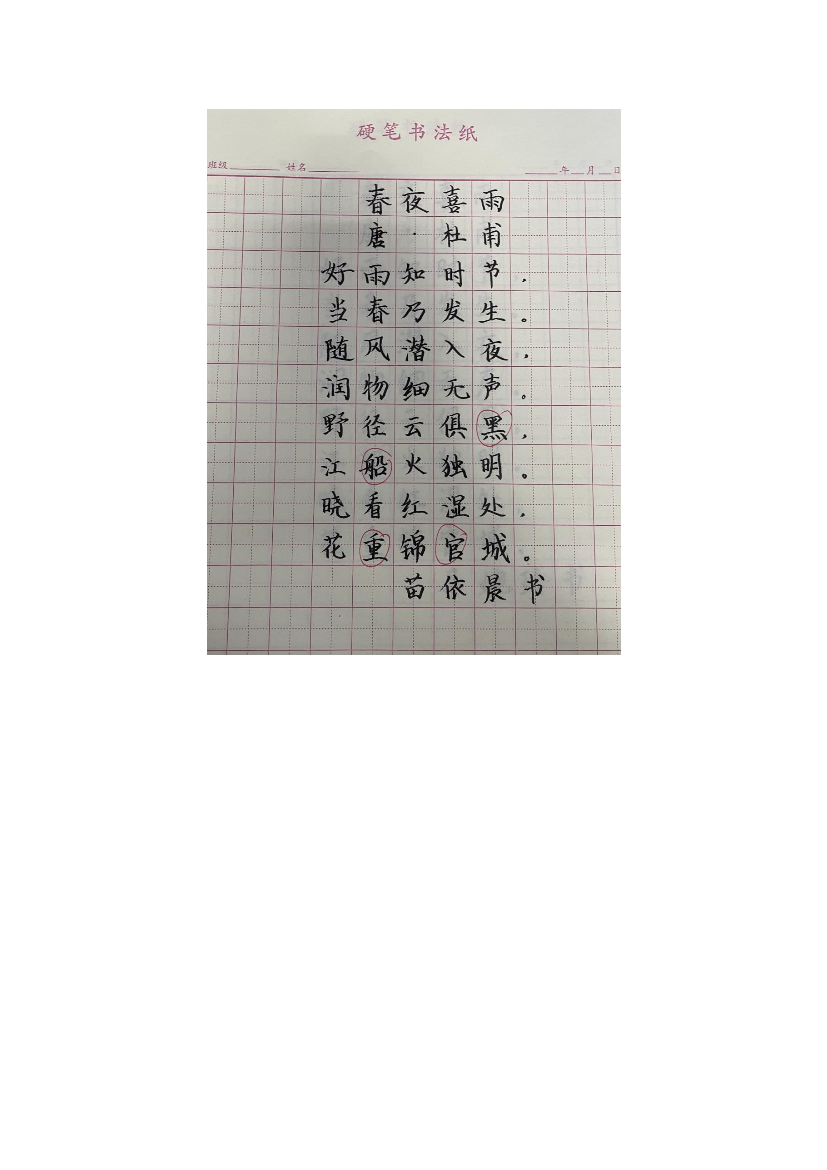 硬笔书法纸
班级 姓名 年 月 日
春夜喜雨
唐·杜甫
好雨知时节，
当春乃发生。
随风潜入夜，
润物细无声。
野径云俱黑，
江船火独明。
晓看红湿处，
花重锦官城。
苗依晨书